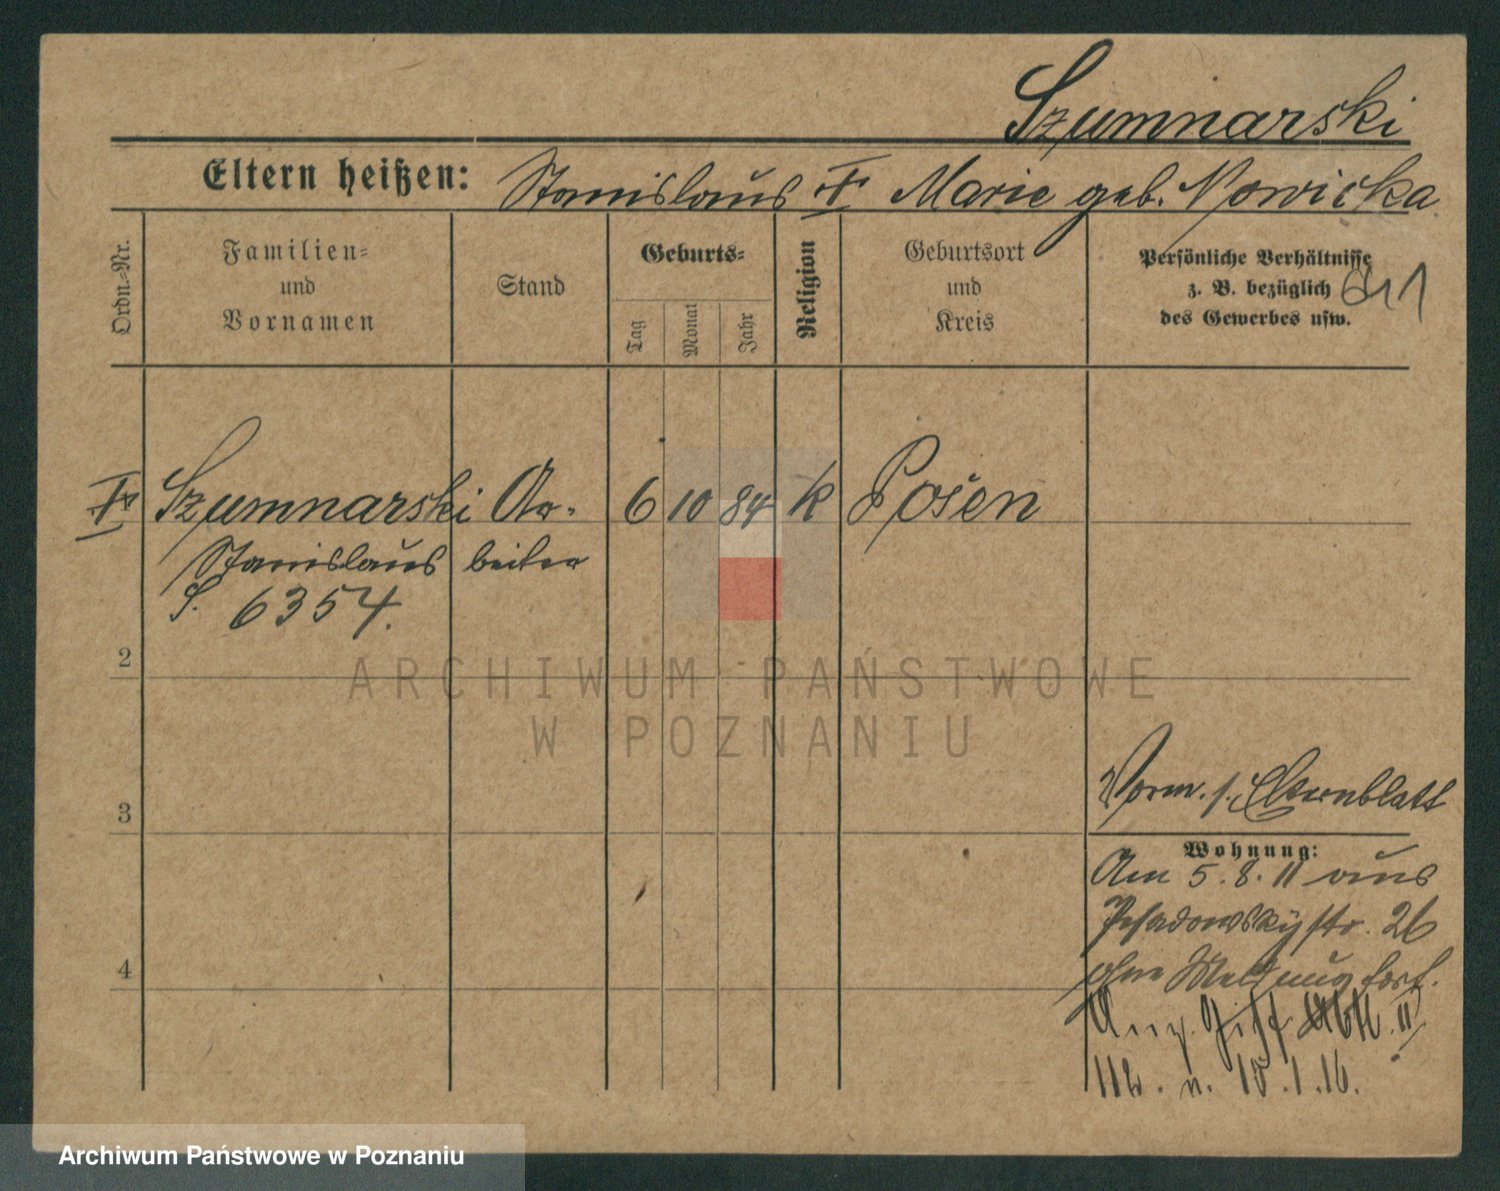 Szumnarski
Eltern heißen: Stanislaus Marie geb. Nowicka
Ordn.-Nr.
Familien-
und
Vornamen
Stand
Geburts-
Tag
Monat
Jahr
Religion
Geburtsort
und
Kreis
Persönliche Verhältnisse
z. B. bezüglich
des Gewerbes usw.
Szumnarski Ar- 6 10 84 k Posen
Stanislaus beiter
S. 6354.
2
ARCHIWUM PAŃSTWOWE
W POZNANIU
Vorm. s. Elternblatt
3
Wohnung:
Am 5. 8. 11 aus
Posadowskystr. 26
4
ohne Meldung fort.
10.1.16.
Archiwum Państwowe w Poznaniu